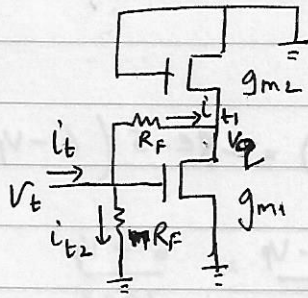 gm2
i t1
RF
Vq
it
gm1
Vt
it2
RF